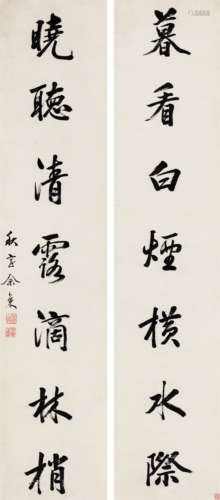 暮看白煙橫水際
曉聽清露滴林梢
秋室余集